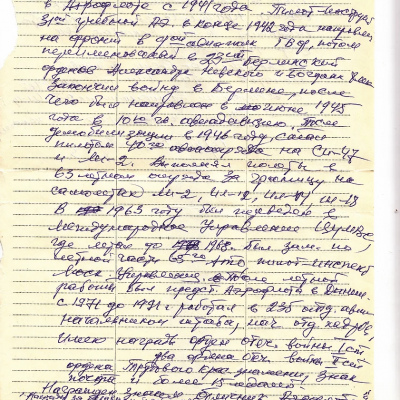 в Аэрофлоте с 1941 года. Пилот-инструк
3ей учебной АЭ. в конце 1942 года направлен
на фронт в авиаполк ГВФ, потом
переименований в 23ий Берлинский
орденов Александра Невского и Богдана
Закончил войну в Берлине, после
чего был направлен в июне 1945
года в 10ю гв. авиадивизию. После
демобилизации в 1946 году, стал
пилотом 40го на Си-47
и Ли-2. Выполнял полёты в
63 летном отряде за границу на
самолётах Ли-2, Ил-12, Ил-14, Ил-18
В 1963 году был переведён в
международное Управление
где летал до 1968. Был зам. по
летной части 63го АТО пилот-инспект
Моск. Управления. После летной
работы был предст. Аэрофлота в Дании.
с 1971 до 1991 г работал в 235 отд. авиа
начальником штаба, нач. отд. кадров,
имею награды орден отеч. войны I ст
два ордена отч. войны II ст
ордена Трудового Кра знамени, Знак
почета и более 15 медалей.
Награжден знаком Отличник Аэрофлота